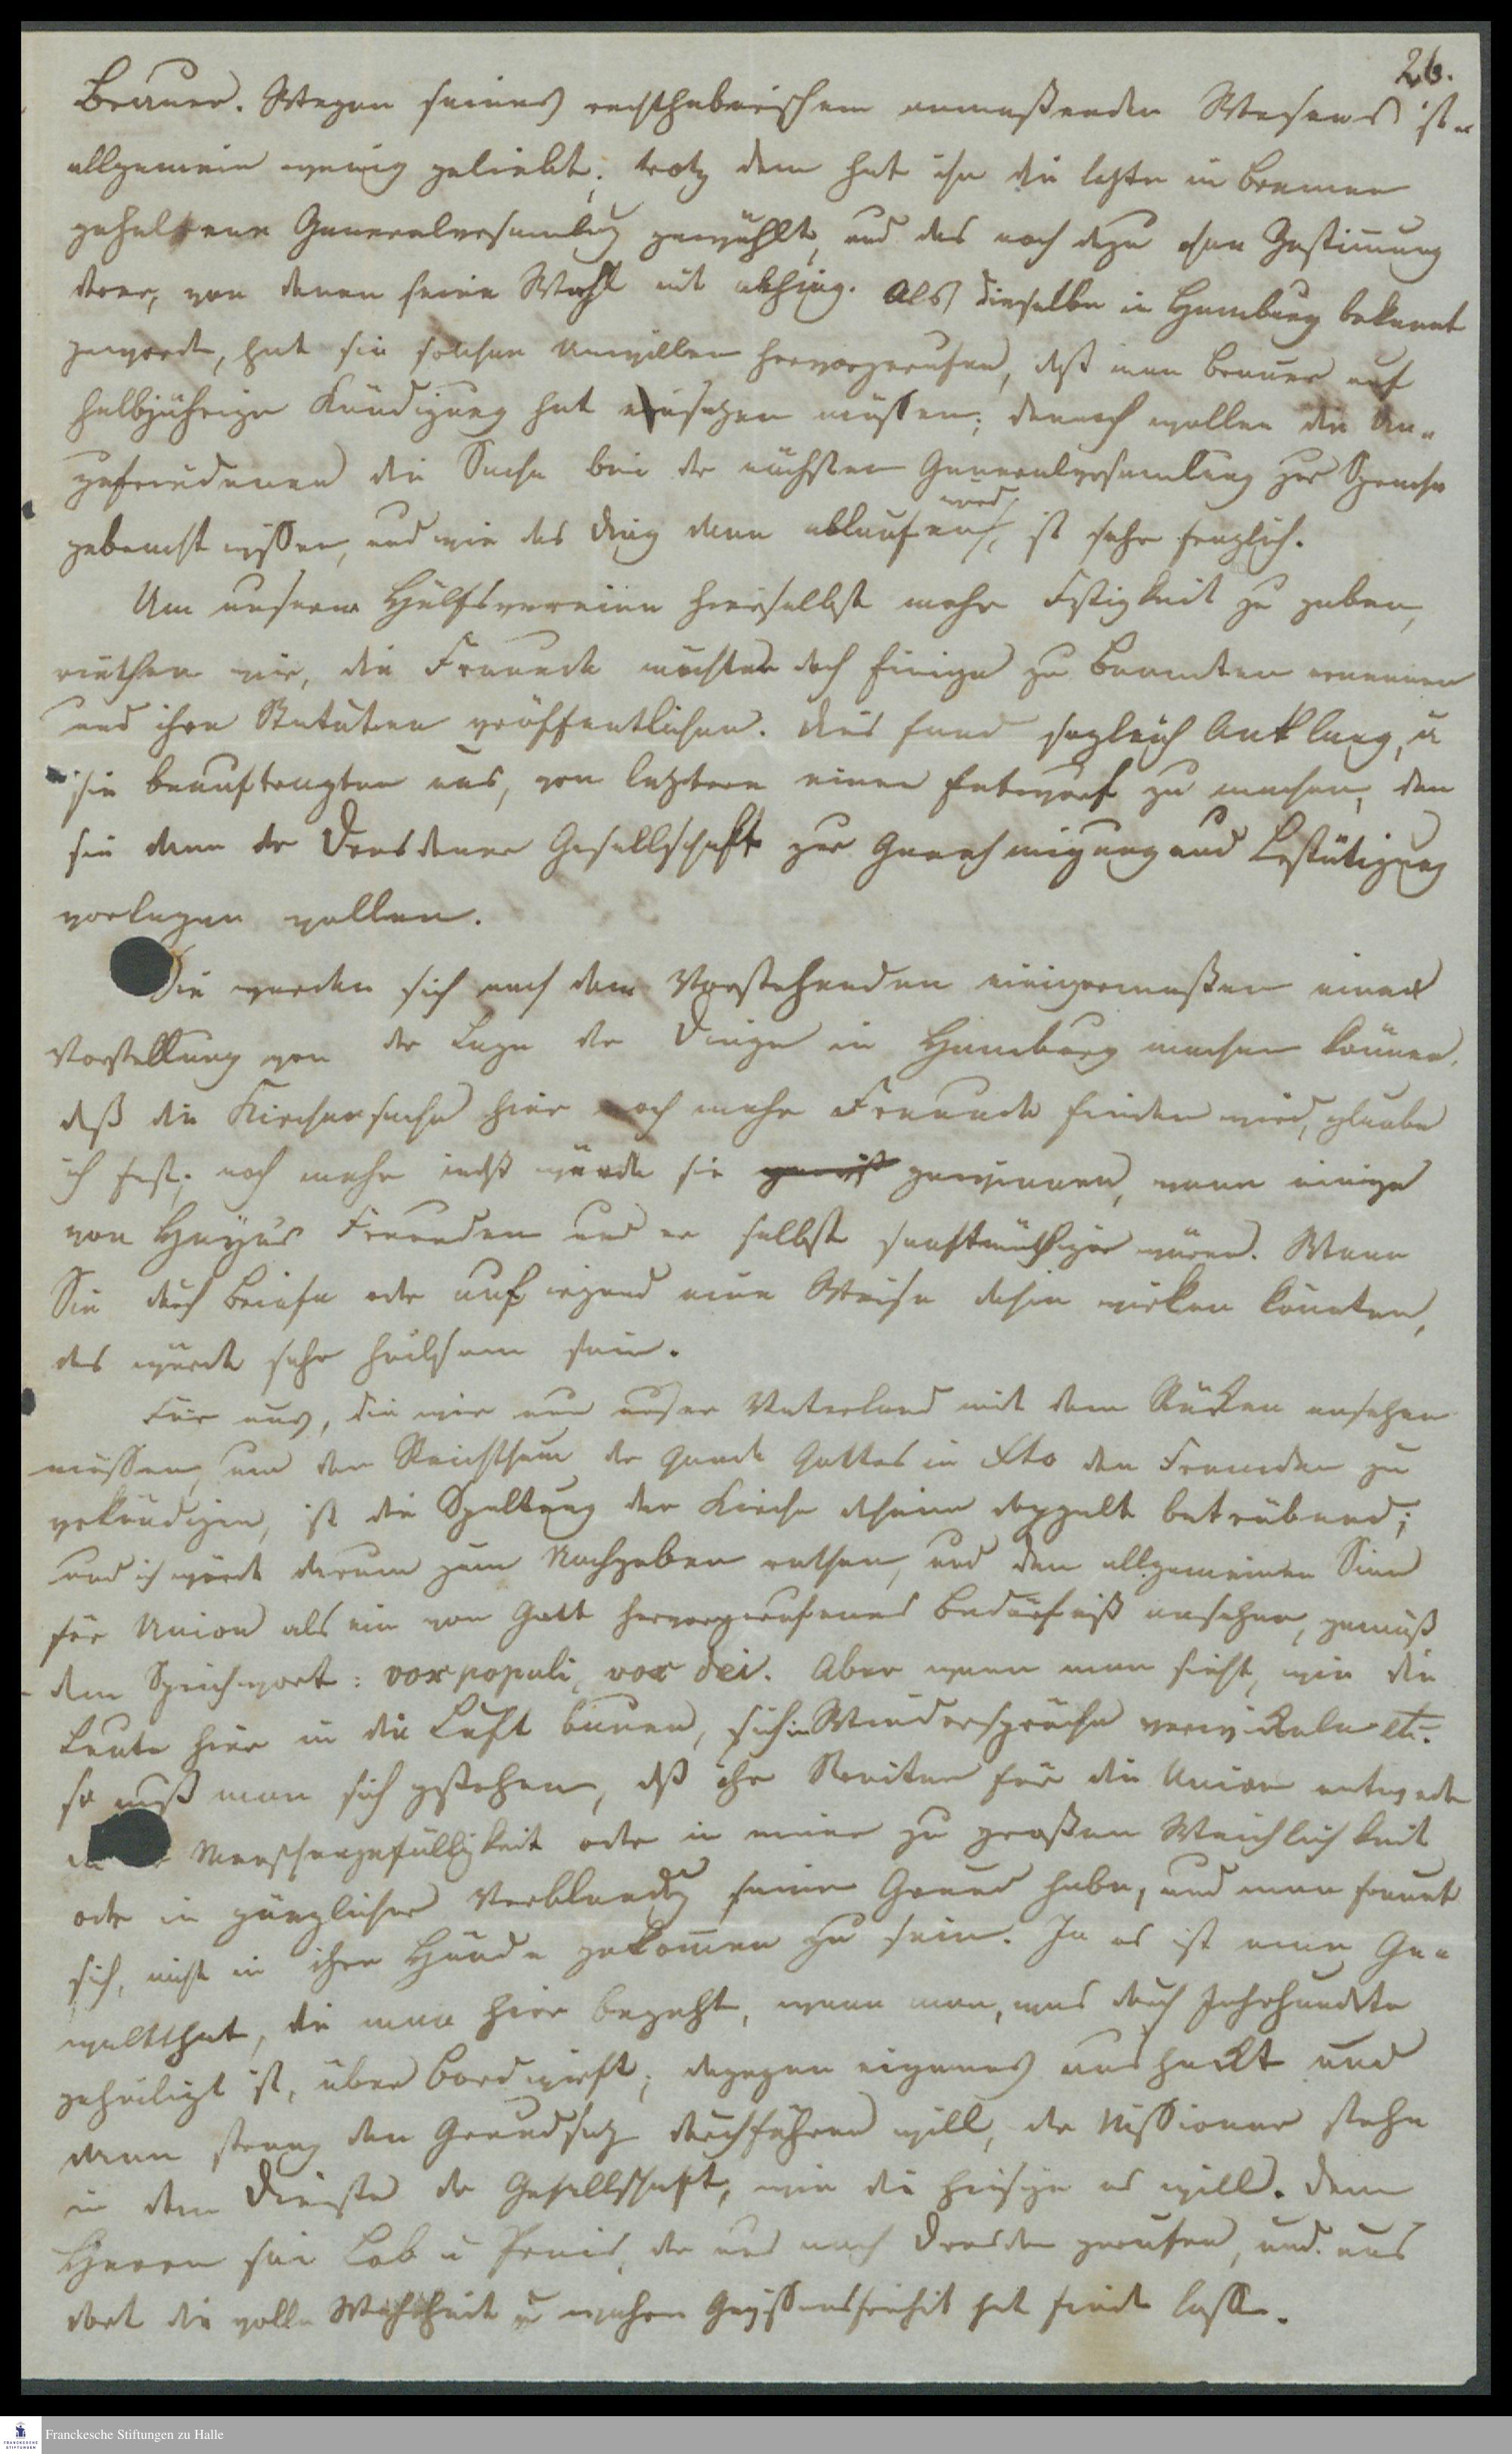 26.
Brauer. Wegen seines rechthaberischen anmaßenden Wesens ist er
allgemein wenig geliebt; trotz dem hat ihn die letzte in Bremen
gehaltene Generalversamlug gewählt, und das noch dazu ohne Zustimung
derer, von denen seine Wahl mit abhing. Als dieselbe in Hamburg bekannt
geworden, hat sie solchen Unwillen hervorgerufen, daß man Brauer auf
halbjährige Kündigung hat einsetzen müssen; dennoch wollen die Un-
zufriedenen die Sache bei der nächsten Generalversamlung zur Sprache
gebracht wissen, und wie das Ding dann ablaufen wird, ist sehr fraglich.
Um unserm Hülfsvereine hierselbst mehr Festigkeit zu geben,
riethen wir, die Freunde möchten doch Einige zu Beamten ernennen
und ihre Statuten veröffentlichen. Dies fand sogleich Anklang, u
sie beauftragten uns, von letztern einen Entwurf zu machen, den
sie dann der Dresdener Gesellschaft zur Genehmigung und Bestätigung
vorlegen wollen.
Sie werden sich nach dem Vorstehenden einigermaßen eine
Vorstellung von der Lage der Dinge in Hamburg machen können.
Daß die Kirchensache hier noch mehr Freunde finden wird, glaube
ich fest; noch mehr indeß würde sie gewiß gewinnen, wenn einige
von Freunden und er selbst sanftmüthiger wären. Wenn
Sie durch Briefe oder auf irgend eine Weise dahin wirken könnten,
das würde sehr heilsam sein.
Für uns, die wir nun unser Vaterland mit dem Rücken ansehen
müssen, um den Reichthum der Gnade Gottes in Xto den Fremden zu
verkündigen, ist die Spaltung der Kirche daheim doppelt betrübend;
und ich würde darum zum Nachgeben rathen, und den allgemeinen Sinn
für Union als ein von Gott hervorgerufenes Bedürfniß ansehen, gemäß
dem Sprichwort: vox populi, vox dei. Aber wenn man sieht, wie die
Leute hier in die Luft bauen, sich in Widersprüche verwickeln etc.
so muß man sich gestehen, daß ihr Streiten für die Union entweder
in Menschengefälligkeit oder in einer zu großen Weichlichkeit
oder in gänzlicher Verblendug seinen Grund habe, und man freuet
sich, nicht in ihre Hände gekommen zu sein. Ja es ist eine Ge-
waltthat, die man hier begeht, wenn man, was durch Jahrhunderte
geheiligt ist, über Bord wirft; dagegen eigenes ausheckt und
dann streng den Grundsatz durchführen will, der Missionar stehe
in dem Dienste der Gesellschaft, wie die hiesige es will. Dem
Herrn sei Lob u Preis, der uns nach Dresden gerufen, und uns
dort die volle Wahrheit u wahre Gewissensfreiheit hat finden lassen.
Franckesche Stiftungen zu Halle